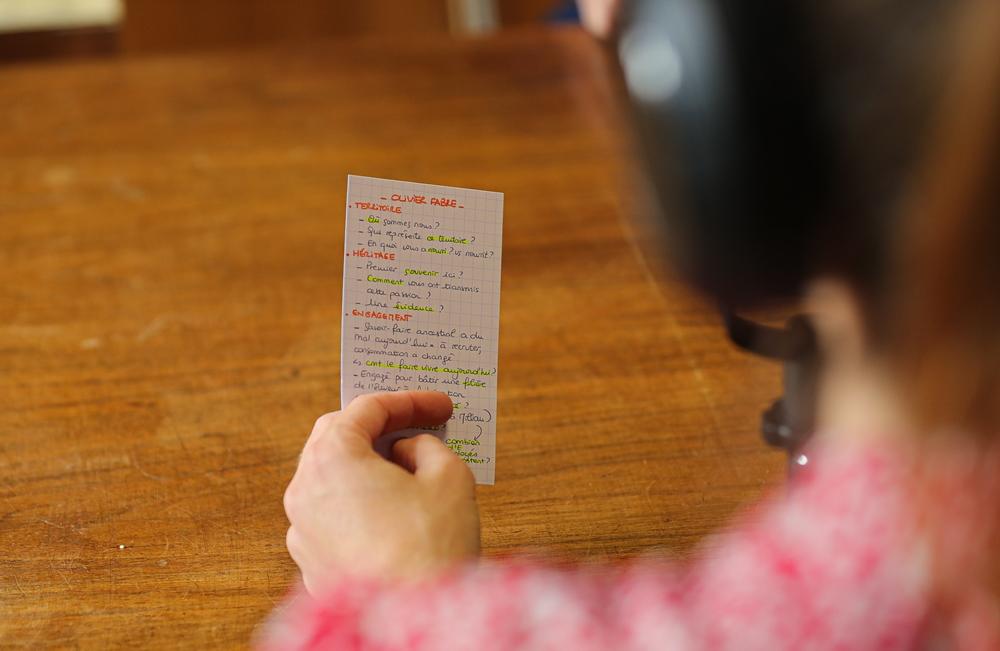 - OLIVIER FABRE -
• TERRITOIRE
- Où sommes nous ?
- Que représente ce territoire ?
- En quoi vous a nourri ? vs nourrit ?
• HÉRITAGE
- Premier souvenir ici ?
- Comment vous ont transmis
cette passion ?
- Une évidence ?
• ENGAGEMENT
- Savoir-faire ancestral a du
mal aujourd'hui à recruter,
consommation a changé
↳ cmt le faire vivre aujourd'hui ?
- Engagé pour bâtir une filière
de l'éleveur
?
Millau)
combien
d'E